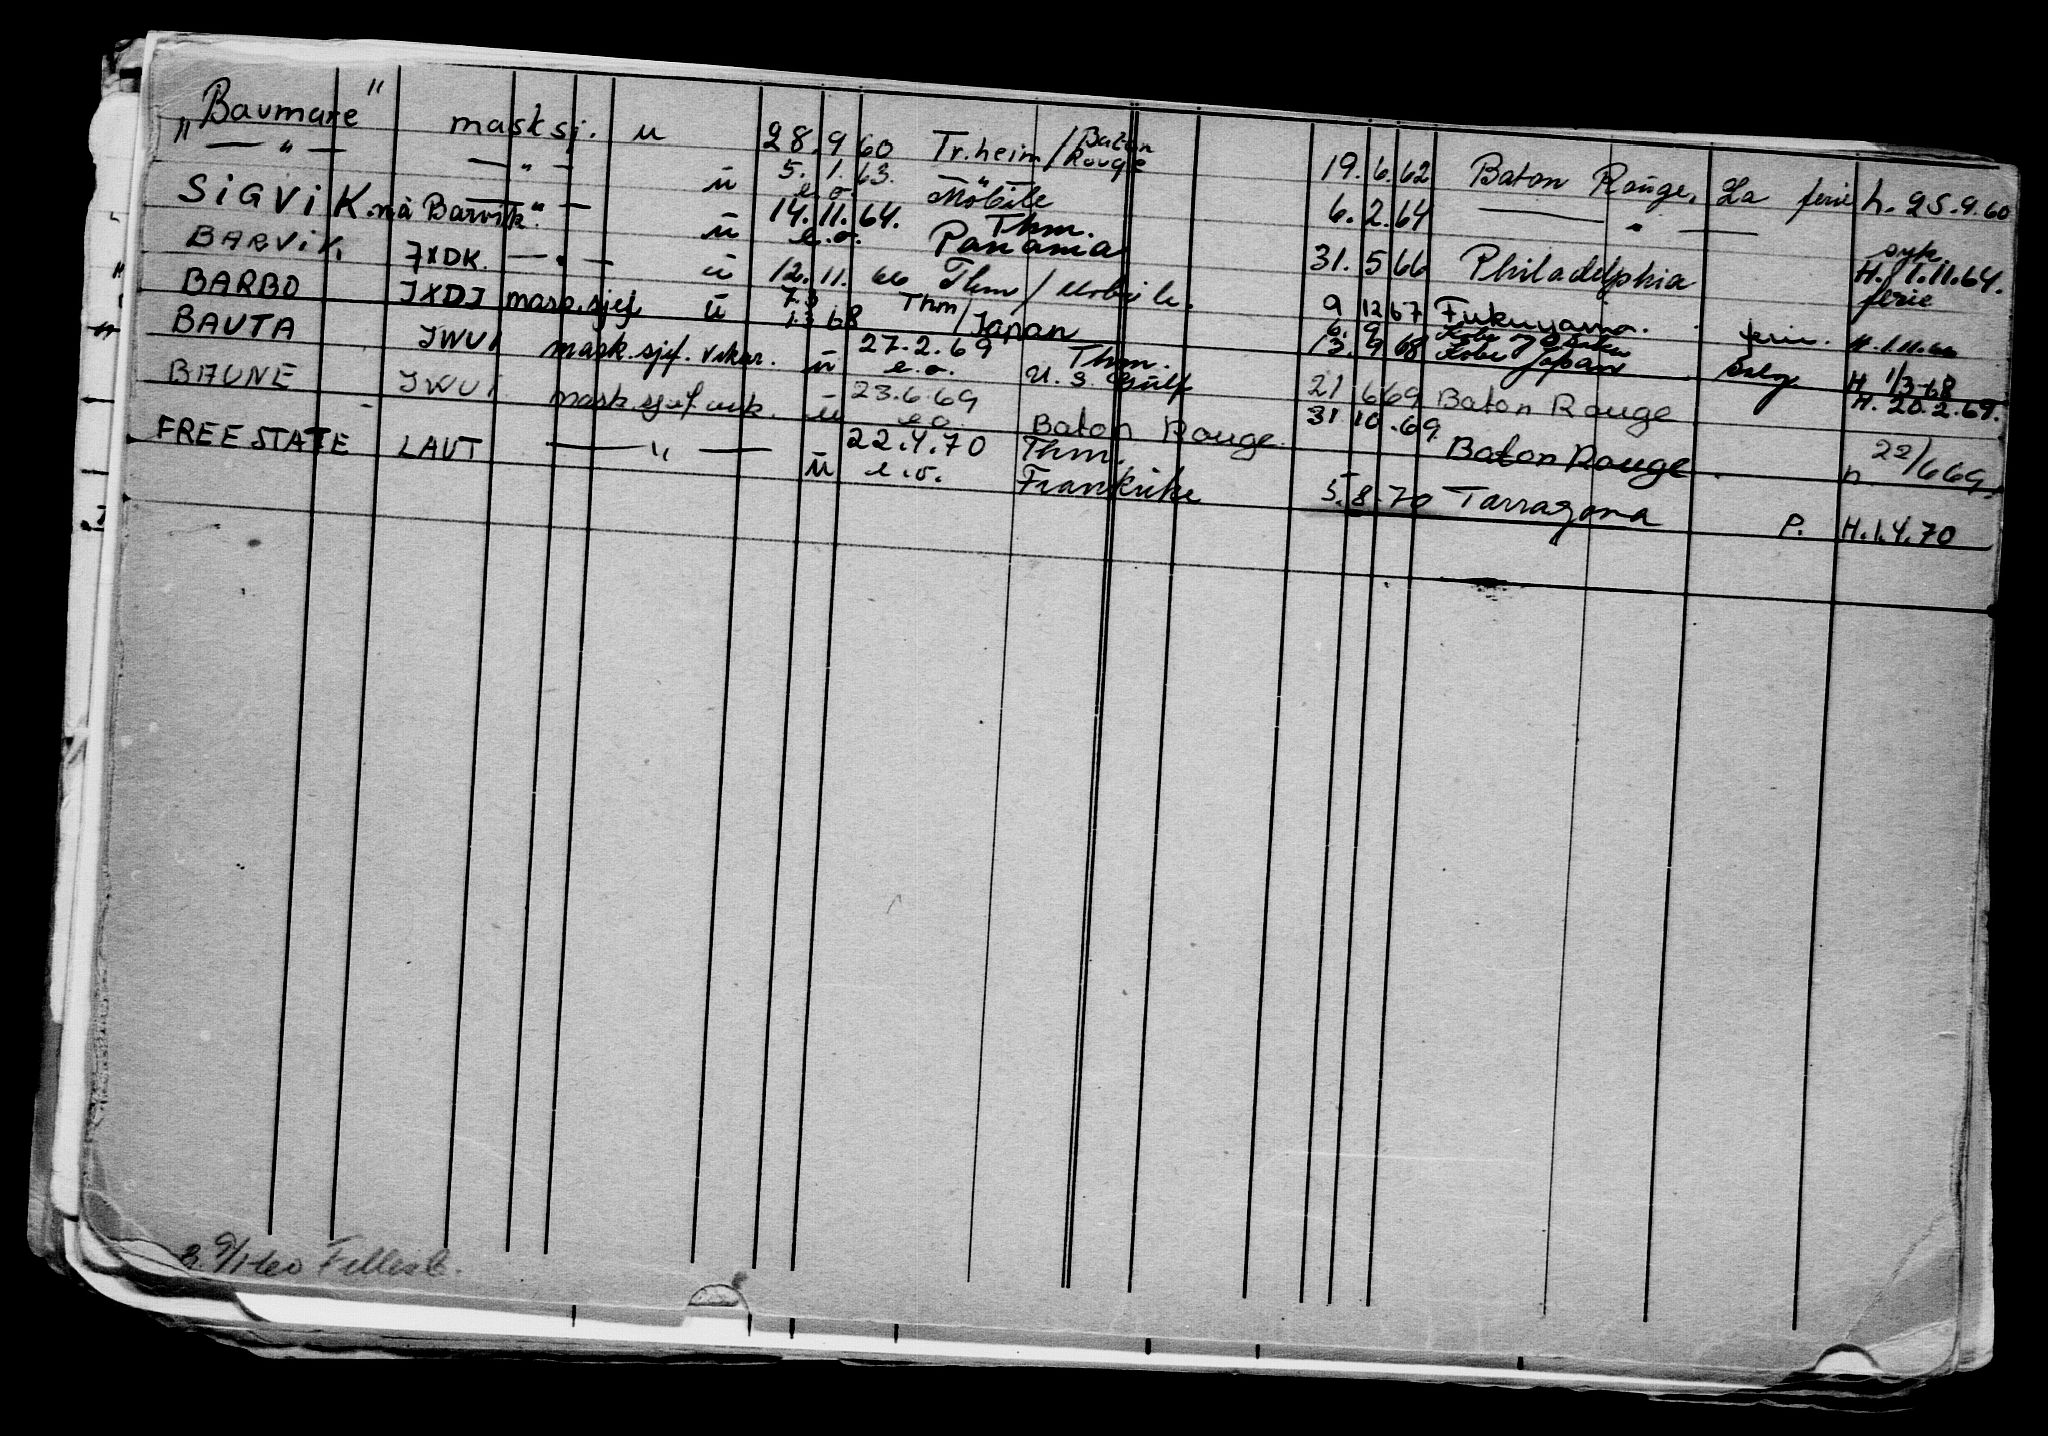 "Baumare" masksj. u 28.9 60 Tr.heim / Baton Rouge 19.6.62 Baton Rouge, La ferie h. 25.9.60
" — " — — " — ü 5.1.63. e.o. Mobile 6.2.64 — " —
SIGVIK. nå Barvik". — ü 14.11.64. e.o. Thm. Panama 31.5 66 Philadelphia syk H. 1.11.64.
BARVIK. JXDK. — " — ü 12.11. 66 Thm / Mobile. 9 12 67 Fukuyama. ferie. H. 1.11.66
BARBO JXDJ mask.sjef ü 7.3 1.3 68 Thm / Japan 6. 9 13. 9 68 Kobe Japan Salg H 1/3-68
BAUTA JWUI mask.sjef. vikar. ü 27.2.69 e.o. Thm. U.S. Gulf 21 6 69 Baton Rouge H. 20.2.69.
BAUNE JWUI mask.sjef vik. ü 23.6.69 e.o. Baton Rouge. 31 10.69. Baton Rouge. h 22/6 69.
FREESTATE LAVT — " — ü 22.4.70 e.o. Thm. Frankrike 5.8.70 Tarragona P. H.1.4.70